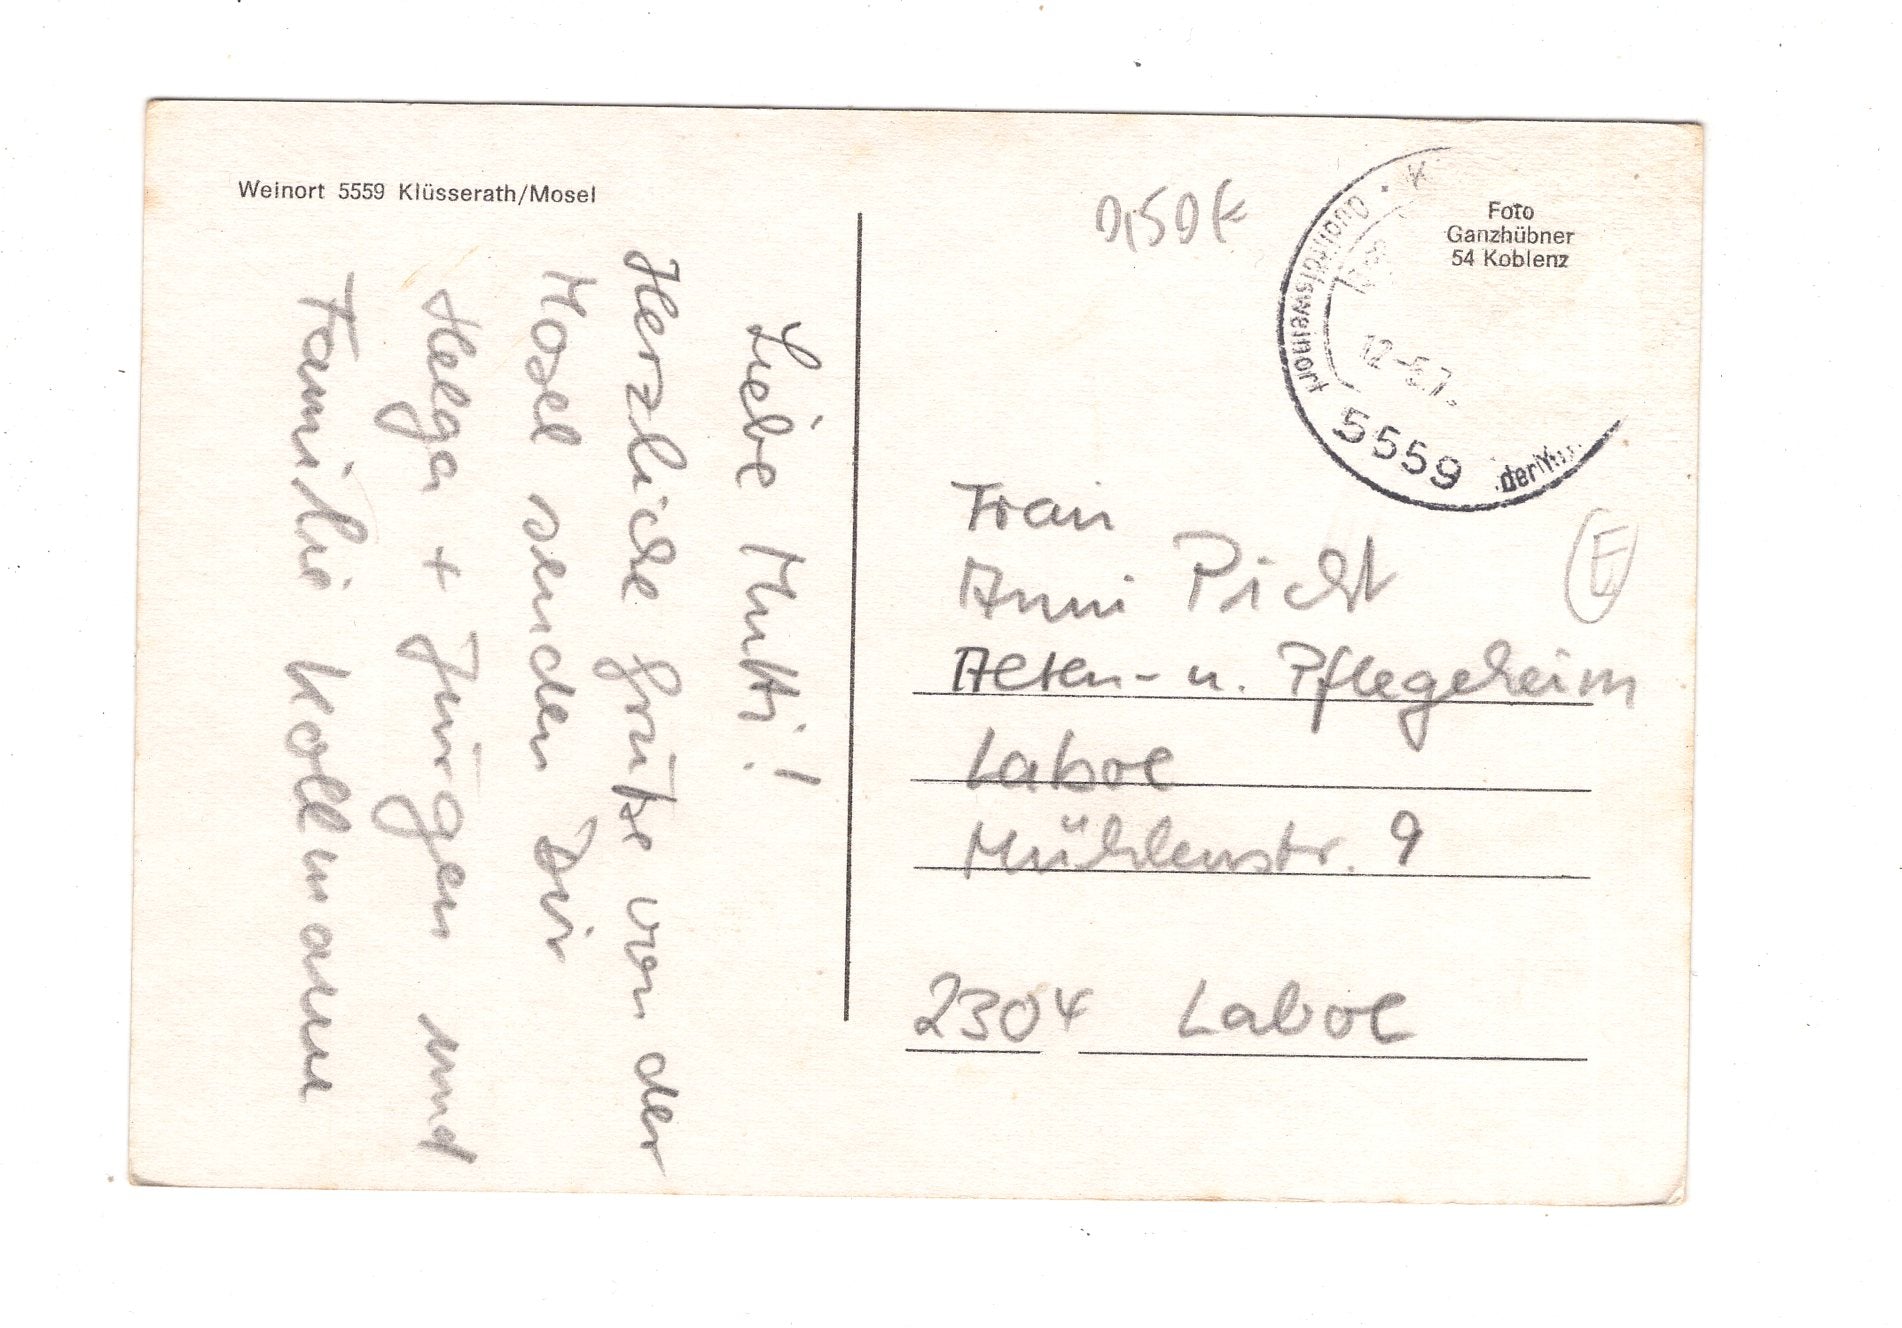 Weinort 5559 Klüsserath/Mosel
Liebe Mutti!
Herzliche Grüße von der
Mosel senden Dir
Helga + Jürgen und
Familie Kollmann
0,50 €
Foto
Ganzhübner
54 Koblenz
Qualitätsweinort
12-5.7
5559
E
Frau
Anni Picht
Alten- u. Pflegeheim
Laboe
Mühlenstr. 9
2304 Laboe